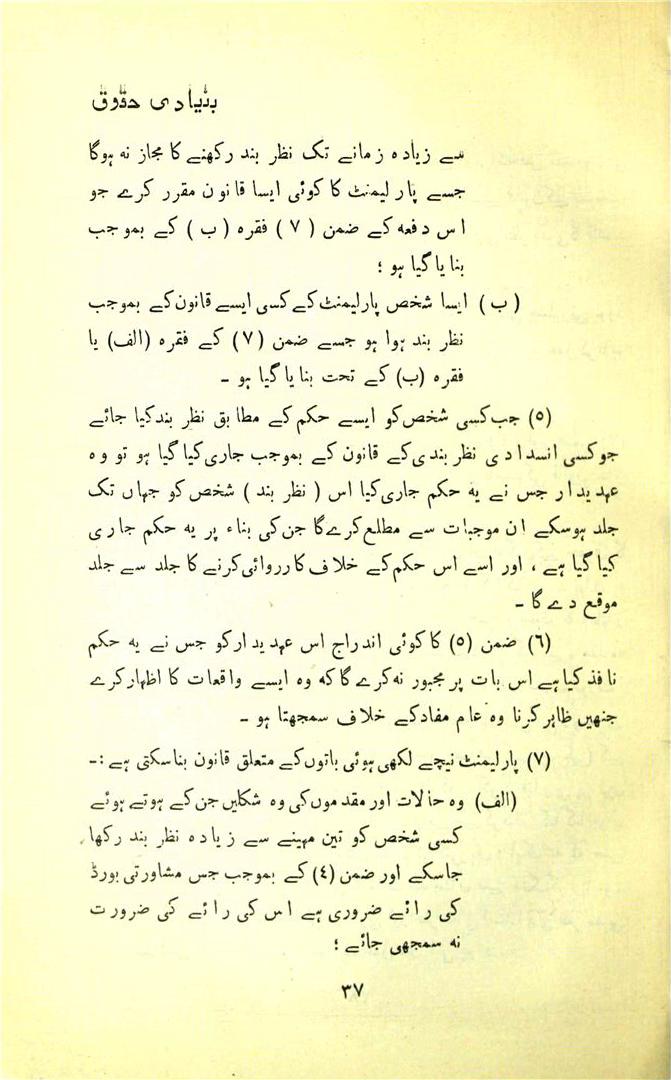 بنیادی حقوق
سے زیادہ زمانے تک نظر بند رکھنے کا مجاز نہ ہوگا
جسے پارلیمنٹ کا کوئی ایسا قانون مقرر کرے جو
اس دفعہ کے ضمن (۷) فقرہ (ب) کے بموجب
بنایا گیا ہو ؛
(ب) ایسا شخص پارلیمنٹ کے کسی ایسے قانون کے بموجب
نظر بند ہوا ہو جسے ضمن (۷) کے فقرہ (الف) یا
فقرہ (ب) کے تحت بنایا گیا ہو ۔
(۵) جب کسی شخص کو ایسے حکم کے مطابق نظر بند کیا جائے
جو کسی انسدادی نظر بندی کے قانون کے بموجب جاری کیا گیا ہو تو وہ
عہدیدار جس نے یہ حکم جاری کیا اس (نظر بند) شخص کو جہاں تک
جلد ہوسکے ان موجبات سے مطلع کرے گا جن کی بناء پر یہ حکم جاری
کیا گیا ہے ، اور اسے اس حکم کے خلاف کارروائی کرنے کا جلد سے جلد
موقع دے گا ۔
(٦) ضمن (۵) کا کوئی اندراج اس عہدیدار کو جس نے یہ حکم
نافذ کیا ہے اس بات پر مجبور نہ کرے گا کہ وہ ایسے واقعات کا اظہار کرے
جنھیں ظاہر کرنا وہ عام مفاد کے خلاف سمجھتا ہو ۔
(۷) پارلیمنٹ نیچے لکھی ہوئی باتوں کے متعلق قانون بنا سکتی ہے :۔
(الف) وہ حالات اور مقدموں کی وہ شکلیں جن کے ہوتے ہوئے
کسی شخص کو تین مہینے سے زیادہ نظر بند رکھا
جاسکے اور ضمن (٤) کے بموجب جس مشاورتی بورڈ
کی رائے ضروری ہے اس کی رائے کی ضرورت
نہ سمجھی جائے ؛
۳۷